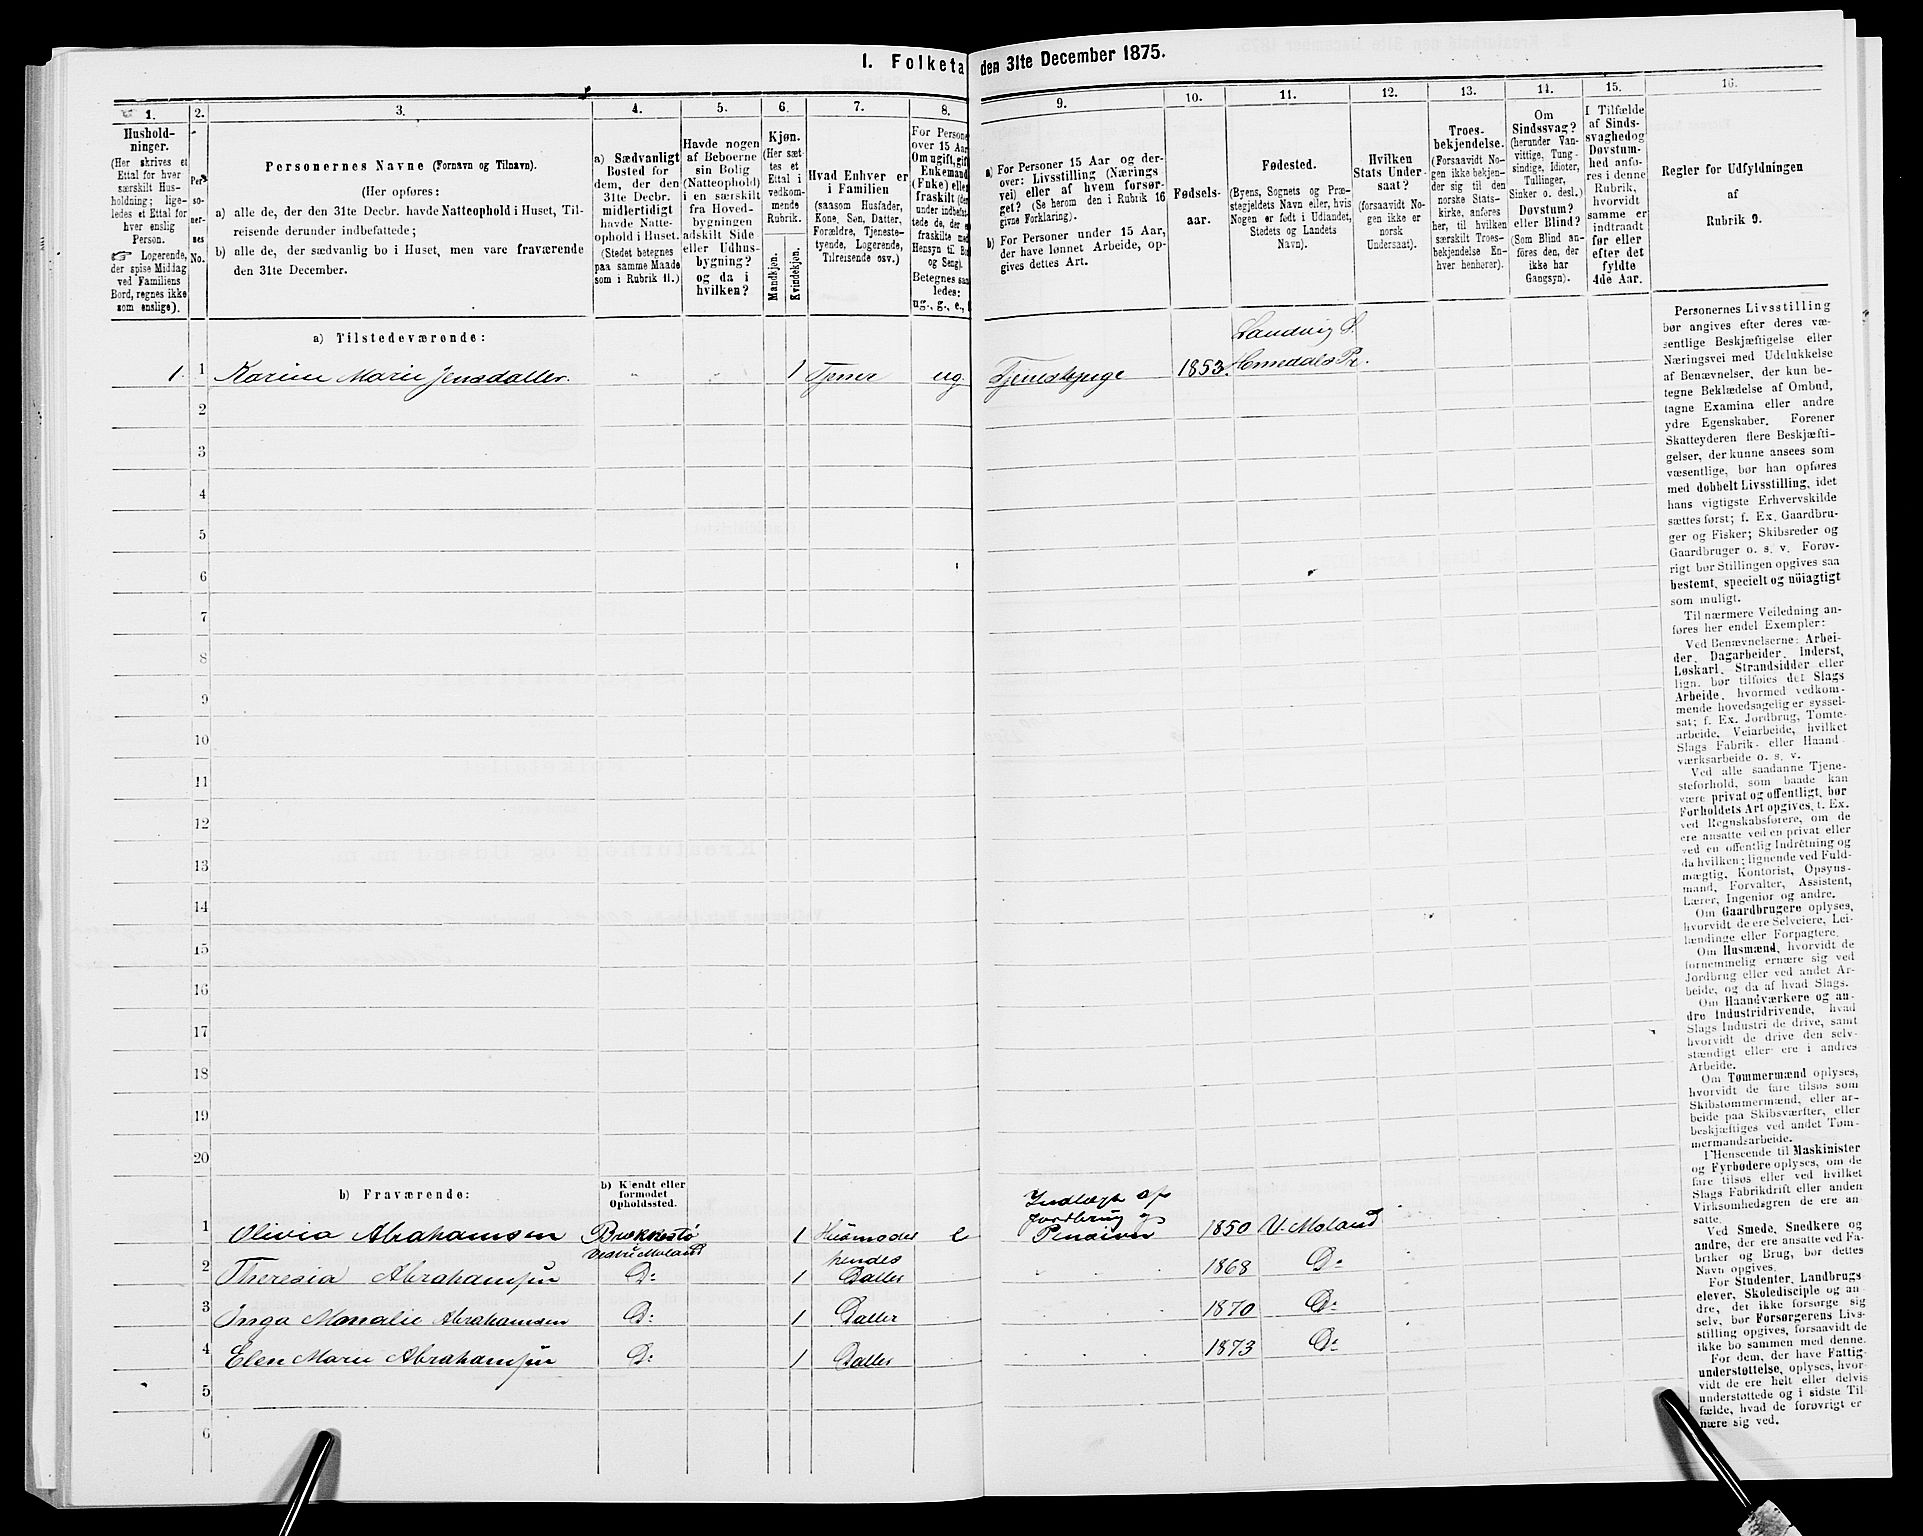 I. Folketa den 31te December 1875.
1. 2. 3. 4. 5. 6. 7. 8. 9. 10. 11. 12. 13. 14. 15. 16.
Hushold-
ninger.
(Her skrives et
Ettal for hver
særskilt Hus-
holdning; lige-
ledes et Ettal for
hver enslig
Person.
☞ Logerende,
der spise Middag
ved Familiens
Bord, regnes ikke
som enslige).
Per-
so-
ner-
nes
No.
Personernes Navne (Fornavn og Tilnavn).
(Her opføres:
a) alle de, der den 31te Decbr. havde Natteophold i Huset, Til-
reisende derunder indbefattede;
b) alle de, der sædvanlig bo i Huset, men vare fraværende
den 31te December.
a) Sædvanligt
Bosted for
dem, der den
31te Decbr.
midlertidigt
havde Natte-
ophold i Huset.
(Stedet betegnes
paa samme Maade
som i Rubrik 11.)
Havde nogen
af Beboerne
sin Bolig
(Natteophold)
i en særskilt
fra Hoved-
bygningen
adskilt Side
eller Udhus-
bygning?
og da i
hvilken?
Kjøn.
(Her sæt-
tes et
Ettal i
vedkom-
mende
Rubrik.
Mandkjøn.
Kvindekjøn.
Hvad Enhver er
i Familien
(saasom Husfader,
Kone, Søn, Datter,
Forældre, Tjeneste-
tyende, Logerende,
Tilreisende osv.)
For Persone
over 15 Aar
Om ugift, gift
Enkemand
(Enke) eller
fraskilt (der
under indbefat-
tede de, der
fraskilte med
Hensyn til Bo
og Seng).
Betegnes saa
ledes:
ug., g., e., f
a) For Personer 15 Aar og der-
over: Livsstilling (Nærings
vei) eller af hvem forsør-
get? (Se herom den i Rubrik 16
givne Forklaring).
b) For Personer under 15 Aar,
der have lønnet Arbeide, op-
gives dettes Art.
Fødsels-
aar.
Fødested.
(Byens, Sognets og Præ-
stegjeldets Navn eller, hvis
Nogen er født i Udlandet,
Stedets og Landets
Navn).
Hvilken
Stats Under-
saat?
(forsaavidt No-
gen ikke er
norsk
Undersaat).
Troes-
bekjendelse.
(Forsaavidt No-
gen ikke bekjen-
der sig til den
norske Stats-
kirke, anføres
her, til hvilken
særskilt Troes-
bekjendelse En-
hver henhører).
Om
Sindssvag?
(herunder Van-
vittige, Tung-
sindige, Idioter,
Tullinger,
Sinker o. desl.)
Døvstum?
eller Blind?
(Som Blind an-
føres den, der
ikke har
Gangsyn).
I Tilfælde
af Sinds-
svaghed og
Døvstum-
hed anfø-
res i denne
Rubrik,
hvorvidt
samme er
indtraadt
før eller
efter det
fyldte
4de Aar.
Regler for Udfyldningen
af
Rubrik 9.
Personernes Livsstilling
bør angives efter deres væ-
sentlige Beskjæftigelse eller
Næringsvei med Udelukkelse
af Benævnelser, der kun be-
tegne Beklædelse af Ombud,
tagne Examina eller andre
ydre Egenskaber. Forener
Skatteyderen flere Beskjæfti-
gelser, der kunne ansees som
væsentlige, bør han opføres
med dobbelt Livsstilling, idet
hans vigtigste Erhvervskilde
sættes først; f. Ex. Gaardbru-
ger og Fisker; Skibsreder og
Gaardbruger o. s. v. Forøv-
rigt bør Stillingen opgives saa
bestemt, specielt og nöiagtigt
som muligt.
Til nærmere Veiledning an-
føres her endel Exempler:
Ved Benævnelserne: Arbei-
der, Dagarbeider, Inderst,
Løskarl, Strandsidder eller
lign. bør tilføies det Slags
Arbeide, hvormed vedkom-
mende hovedsagelig er syssel-
sat; f. Ex. Jordbrug, Tømte-
arbeide, Veiarbeide, hvilket
Slags Fabrik- eller Haand-
værksarbeide o. s. v.
Ved alle saadanne Tjene-
steforhold, som baade kan
være privat og offentligt, bør
Forholdets Art opgives, t. Ex.
ved Regnskabsførere, om de
ere ansatte ved en privat eller
ved en offentlig Indretning og
da hvilken; lignende ved Fuld-
mægtig, Kontorist, Opsyns-
mand, Forvalter, Assistent,
Lærer, Ingeniør og andre.
Om Gaardbrugere oplyses,
hvorvidt de ere Selveiere, Lei-
lændinge eller Forpagtere.
Om Husmænd, hvorvidt de
fornemmelig ernære sig ved
Jordbrug eller ved andet Ar-
beide, og da af hvad Slags.
Om Haandværkere og an-
dre Industridrivende, hvad
Slags Industri de drive, samt
hvorvidt de drive den selv-
stændigt eller ere i andres
Arbeide.
Om Tømmermænd oplyses,
hvorvidt de fare tilsøs som
Skibstømmermænd, eller ar-
beide paa Skibsværfter, eller
beskjæftiges ved andet Tøm-
mermandsarbeide.
I Henseende til Maskinister
og Fyrbødere oplyses, om de
fare tilsøs eller ved hvilket
Slags Fabrikdrift eller anden
Virksomhedsgren de ere an-
satte.
Ved Smede, Snedkere og
andre, der ere ansatte ved Fa-
briker og Brug, bør dettes
Navn opgives.
For Studenter, Landbrugs
elever, Skoledisciple og an-
dre, det ikke forsørge sig
selv, bør Forsørgerens Livs-
stilling opgives, forsaavidt de
ikke bo sammen med denne.
For dem, der have Fattig-
understøttelse, oplyses, hvor-
vidt de ere helt eller delvis
understøttede og i sidste Til-
fælde, hvad de forøvrigt er
nære sig ved.
a) Tilstedeværende:
Landvig S.
1. 1 Karine Marie Jensdatter. 1 Tjener ug. Tjenestepige 1853. Homedals Pr.
2
3
4
5
6
7
8
9
10
11
12
13
14
15
16
17
18
19
20
b) Fraværende:
b) Kjendt eller
formodet
Opholdssted.
Indlagt af
Jordbrug og
1 Olivia Abrahamsen Brekkestø 1 Husmoder e Pension 1850 V. Moland
Vestre Moland
hendes
2 Theresia Abrahamsen D: 1 Datter 1868 D:
3 Inga Monalie Abrahamsen D: 1 Datter 1870 D:
4 Elen Marie Abrahamsen D: 1 Datter 1873 D:
5
6